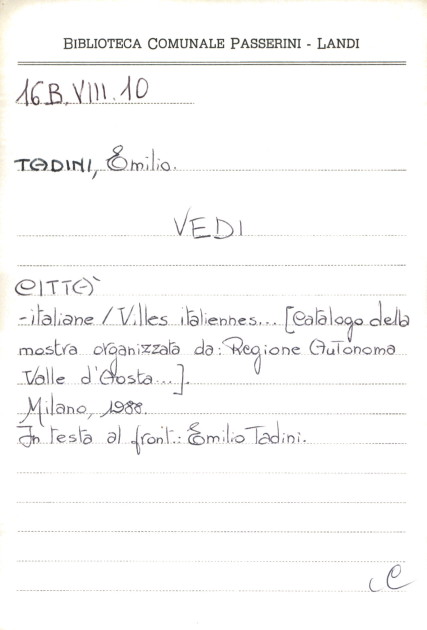 BIBLIOTECA COMUNALE PASSERINI - LANDI
16B.VIII.10
TADINI, Emilio.
VEDI
CITTÀ
-italiane / Villes italiennes... [Catalogo della
mostra organizzata da: Regione Autonoma
Valle d'Aosta...].
Milano, 1988.
In testa al front.: Emilio Tadini.
C